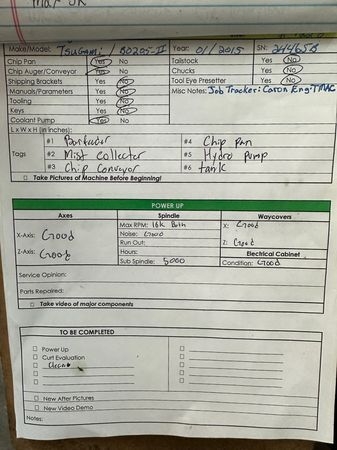 Mar JR
Make/Model: Tsugami / B0205-II Year: 01/2015 SN: 244658
Chip Pan Yes No Tailstock Yes No
Chip Auger/Conveyor Yes No Chucks Yes No
Shipping Brackets Yes No Tool Eye Presetter Yes No
Manuals/Parameters Yes No Misc Notes: Job Tracker: Caron Eng. TMAC
Tooling Yes No
Keys Yes No
Coolant Pump Yes No
L x W x H (in inches):
Tags
#1 #4 Chip Pan
#2 Mist Collector #5 Hydro Pump
#3 Chip Conveyor #6 tank
□ Take Pictures of Machine Before Beginning!
POWER UP
Axes Spindle Waycovers
X-Axis: Good Max RPM: 10k Both X: Good
Noise: Good
Z-Axis: Good Run Out: Z: Good
Hours: Electrical Cabinet
Sub Spindle: 5000 Condition: Good
Service Opinion:
Parts Repaired:
□ Take video of major components
TO BE COMPLETED
□ Power Up
□ Curt Evaluation
□ Clean
□ New After Pictures
□ New Video Demo
Notes: